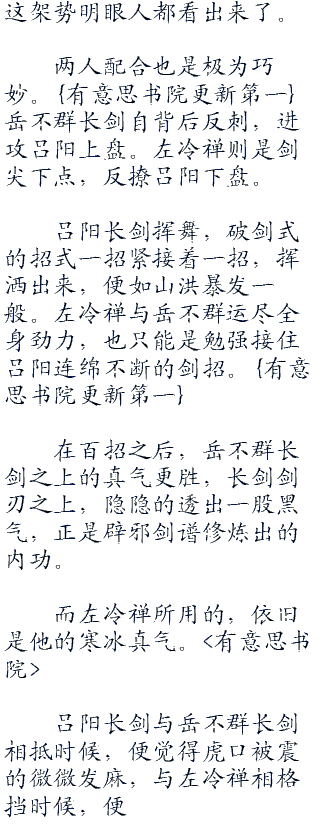 这架势明眼人都看出来了。
两人配合也是极为巧
妙。{有意思书院更新第一}
岳不群长剑自背后反刺，进
攻吕阳上盘。左冷禅则是剑
尖下点，反撩吕阳下盘。
吕阳长剑挥舞，破剑式
的招式一招紧接着一招，挥
洒出来，便如山洪暴发一
般。左冷禅与岳不群运尽全
身劲力，也只能是勉强接住
吕阳连绵不断的剑招。{有意
思书院更新第一}
在百招之后，岳不群长
剑之上的真气更胜，长剑剑
刃之上，隐隐的透出一股黑
气，正是辟邪剑谱修炼出的
内功。
而左冷禅所用的，依旧
是他的寒冰真气。<有意思书
院>
吕阳长剑与岳不群长剑
相抵时候，便觉得虎口被震
的微微发麻，与左冷禅相格
挡时候，便